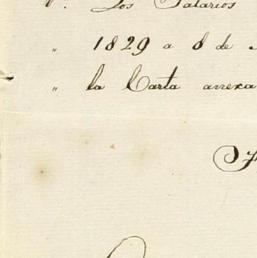 Los Salarios
" 1829 a 8 de
" la Carta anexa